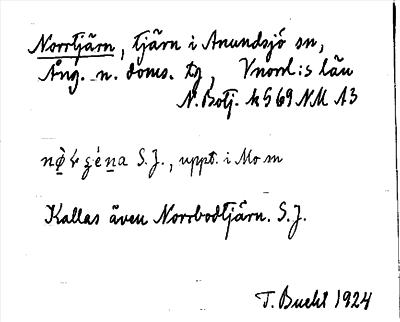 Norrtjärn, tjärn i Anundsjö sn,
Ång. n. doms. tg, Vnorrl:s län
N. Botj. k 569 NM A3
S.J., uppt. i Mo sn
Kallas även Norrbodtjärn. S.J.
T. Bucht 1924